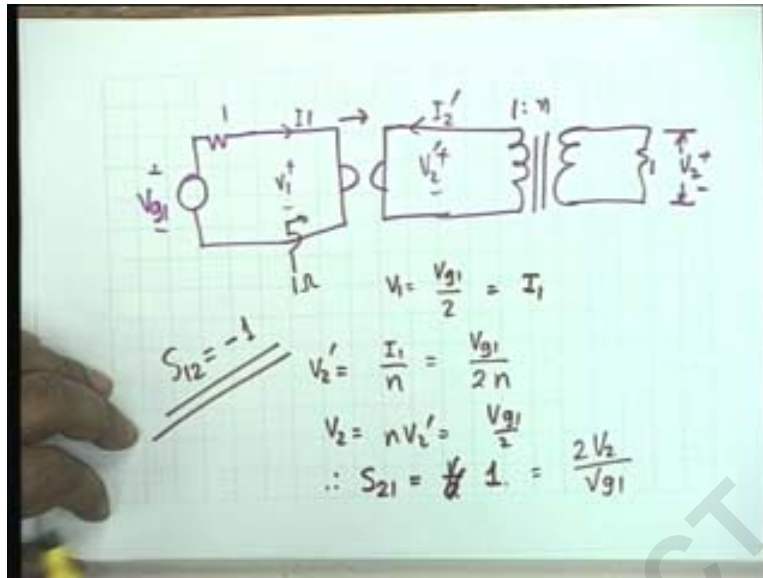 1 I1 → I2' 1:n
+ Vg1 - V1 + - V2' + - 1 V2 + -
1Ω
V1 = Vg1/2 = I1
S12 = -1
V2' = I1/n = Vg1/2n
V2 = nV2' = Vg1/2
∴ S21 = 1. = 2V2/Vg1
CT